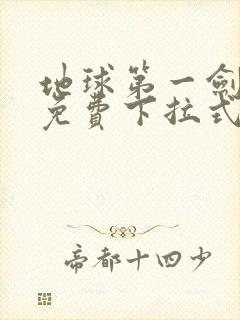 地球第一劍
免費下拉式
帝都十四少